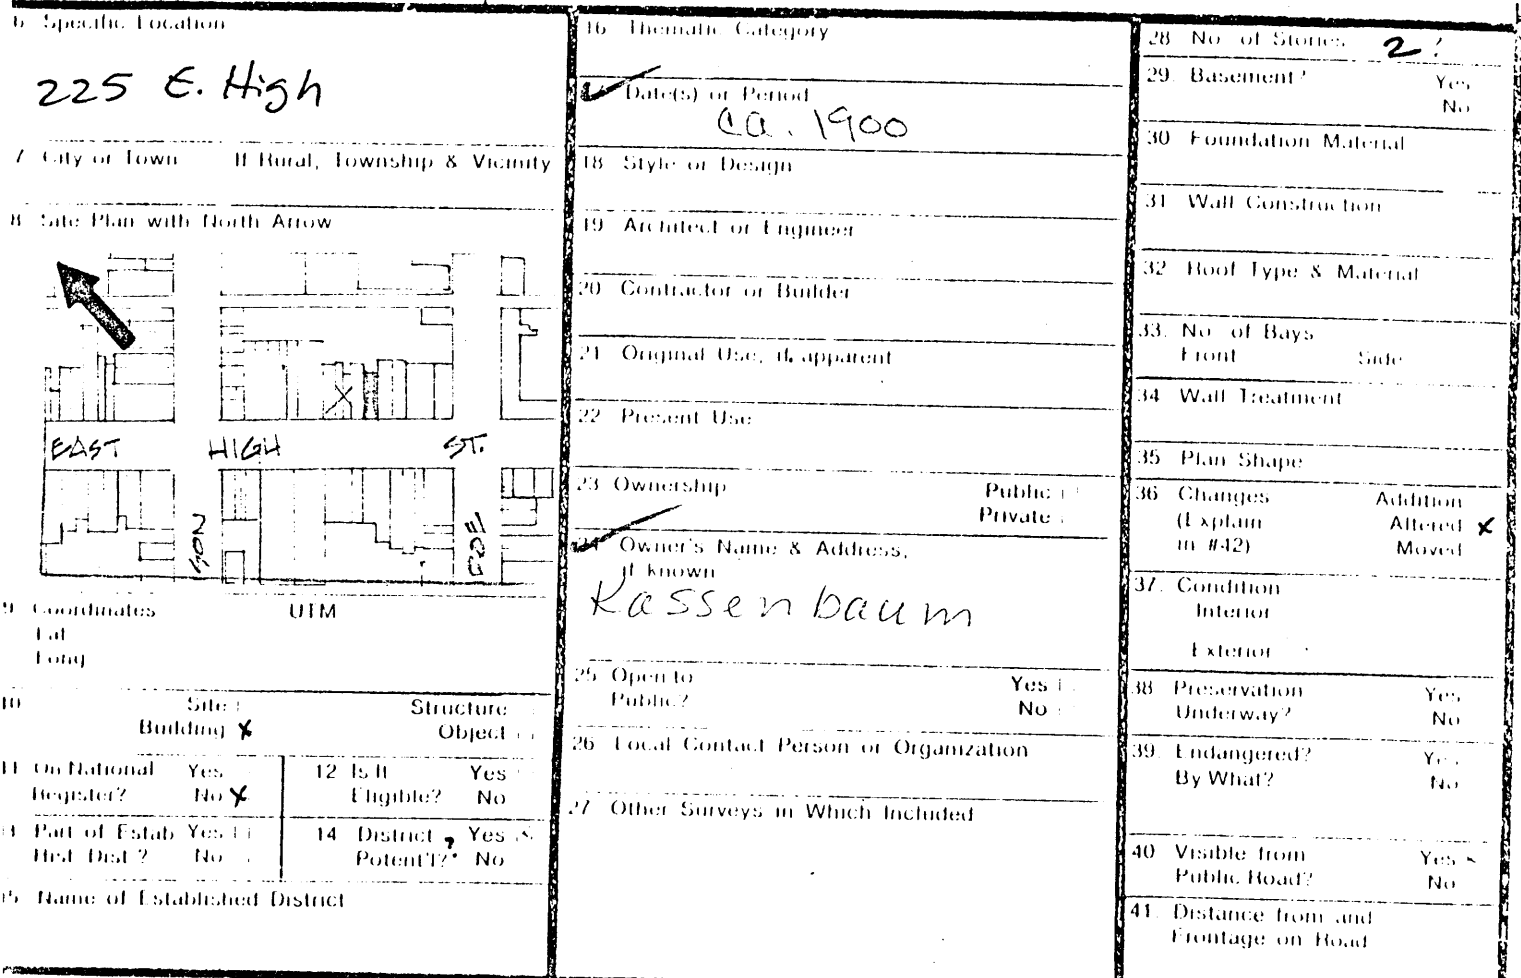 6 Specific Location
225 E. High
7 City or Town If Rural, Township & Vicinity
8 Site Plan with North Arrow
EAST HIGH ST.
SON
ROE
9 Coordinates UTM
Lat
Long
10 Site Structure
Building X Object
11 On National Yes
Register? No X
12 Is It Yes
Eligible? No
13 Part of Estab Yes
Hist Dist ? No
14 District ? Yes X
Potent'l? No
15 Name of Established District
16 Thematic Category
17 Date(s) or Period
ca. 1900
18 Style or Design
19 Architect or Engineer
20 Contractor or Builder
21 Original Use, if apparent
22 Present Use
23 Ownership Public
Private
24 Owner's Name & Address,
if known
Kassenbaum
25 Open to Yes
Public? No
26 Local Contact Person or Organization
27 Other Surveys in Which Included
28 No. of Stories 2 ?
29. Basement? Yes
No
30 Foundation Material
31 Wall Construction
32 Roof Type & Material
33. No. of Bays
Front Side
34 Wall Treatment
35 Plan Shape
36 Changes Addition
(Explain Altered X
in #42) Moved
37. Condition
Interior
Exterior
38 Preservation Yes
Underway? No
39. Endangered? Yes
By What? No
40 Visible from Yes X
Public Road? No
41. Distance from and
Frontage on Road